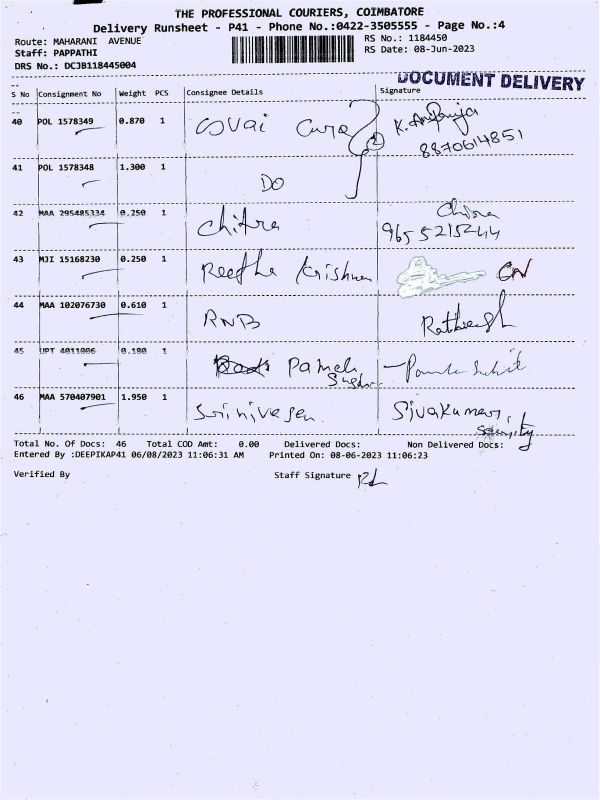 THE PROFESSIONAL COURIERS, COIMBATORE
Delivery Runsheet - P41 - Phone No.:0422-3505555 - Page No.:4
Route: MAHARANI AVENUE RS No.: 1184450
Staff: PAPPATHI RS Date: 08-Jun-2023
DRS No.: DCJB118445004
DOCUMENT DELIVERY
S No Consignment No Weight PCS Consignee Details Signature
40 POL 1578349 0.870 1 Covai Cure
8870614851
41 POL 1578348 1.300 1 DO
42 MAA 295485334 0.250 1 Chitra Chitra
9655215244
43 MJI 15168230 0.250 1 Reetha Krishnan
44 MAA 102076730 0.610 1 RNB
45 UPT 4011006 0.180 1 Pamela
46 MAA 570407901 1.950 1 Srinivasan Sivakumar,
Security
Total No. Of Docs: 46 Total COD Amt: 0.00 Delivered Docs: Non Delivered Docs:
Entered By :DEEPIKAP41 06/08/2023 11:06:31 AM Printed On: 08-06-2023 11:06:23
Verified By Staff Signature